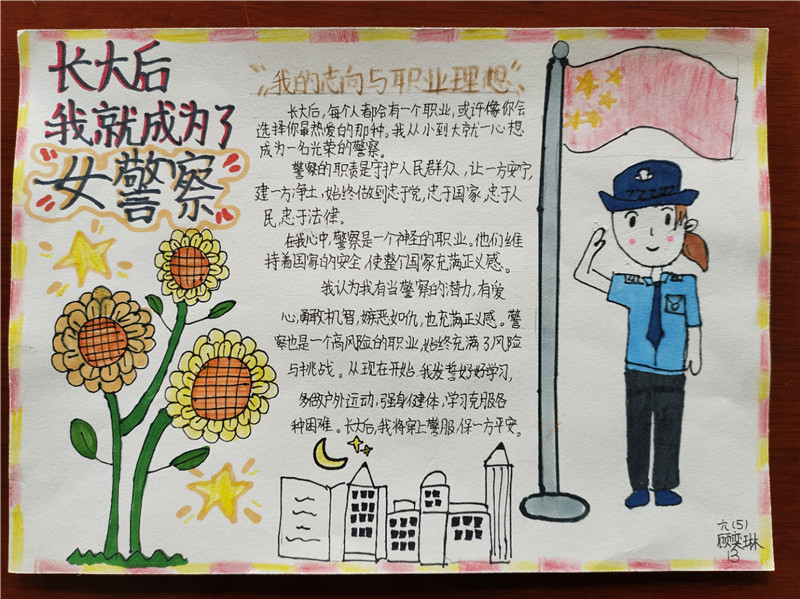 长大后
我就成为了
“女警察”
“我的志向与职业理想”
长大后,每个人都会有一个职业,或许像你会
选择你最热爱的那种。我从小到大就一心想
成为一名光荣的警察。
警察的职责是守护人民群众,让一方安宁,
建一方净土,始终做到忠于党,忠于国家,忠于人
民,忠于法律。
在我心中,警察是一个神圣的职业。他们维
持着国家的安全,使整个国家充满正义感。
我认为我有当警察的潜力,有爱
心,勇敢机智,嫉恶如仇,也充满正义感。警
察也是一个高风险的职业,始终充满了风险
与挑战。从现在开始,我发誓好好学习,
多做户外运动,强身健体,学习克服各
种困难。长大后,我将穿上警服,保一方平安。
六(5)
顾奕琳
13